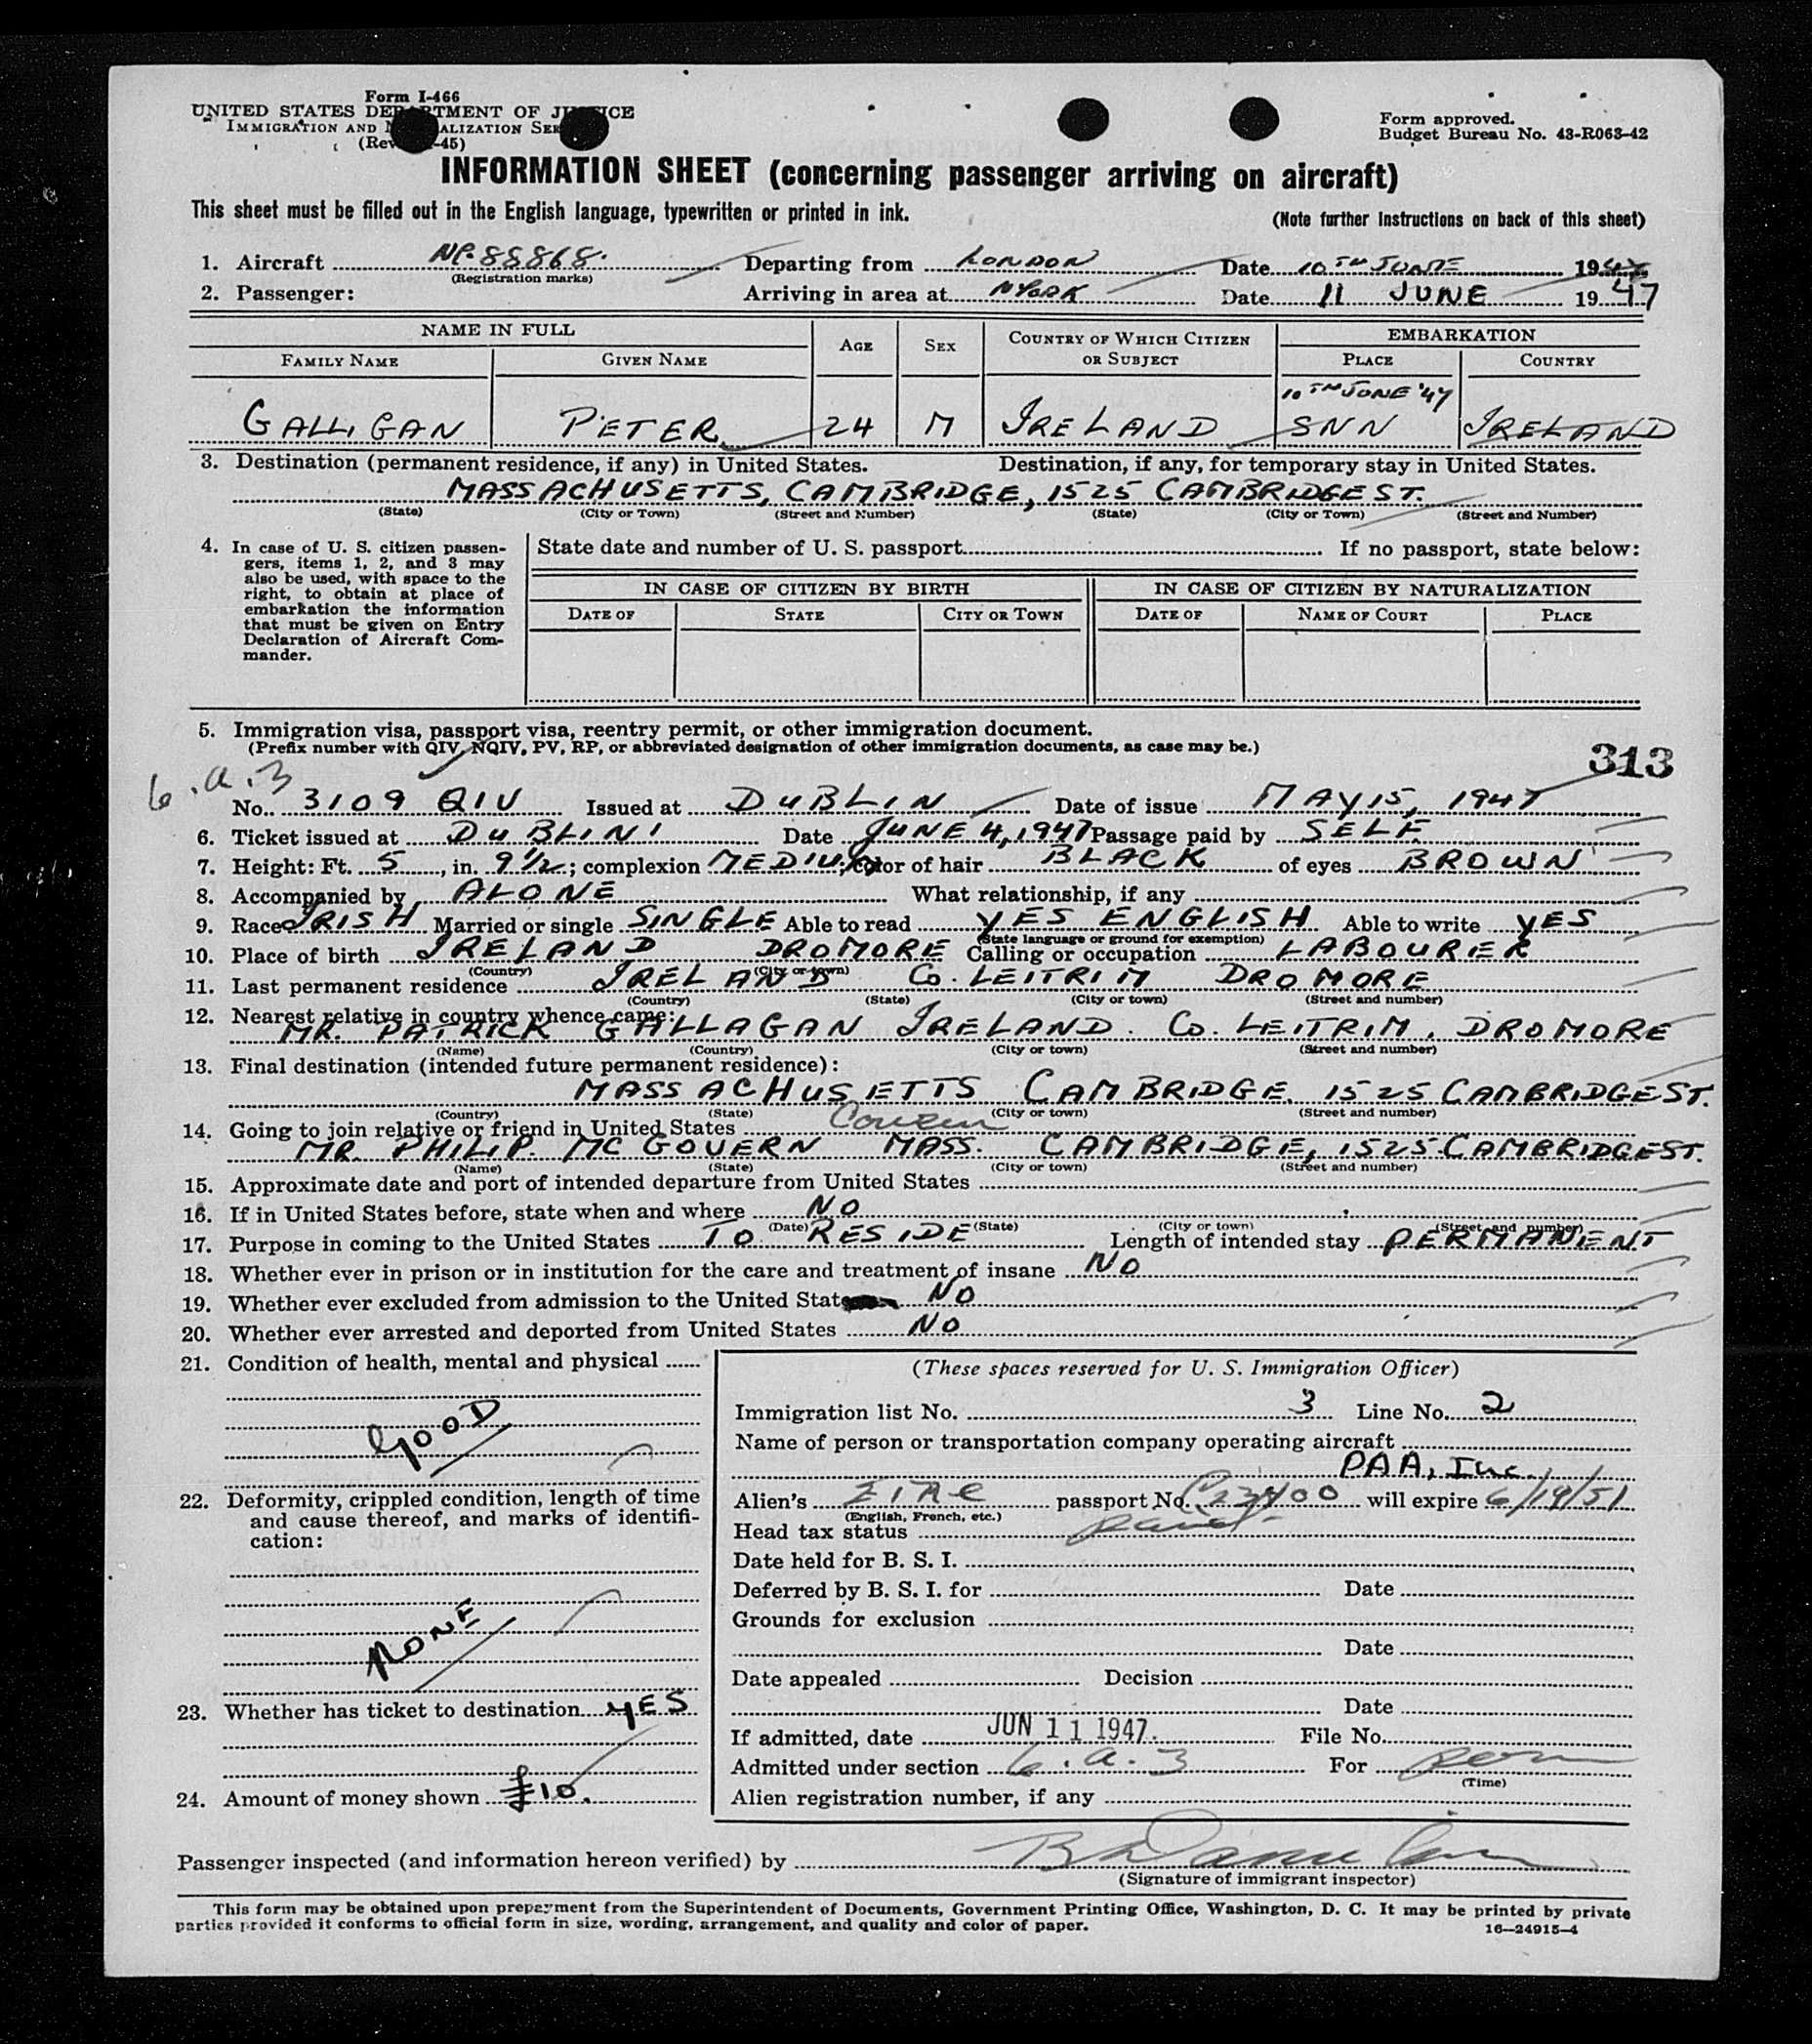 Form I-466
UNITED STATES DEPARTMENT OF JUSTICE
IMMIGRATION AND NATURALIZATION SERVICE
(Rev. -45)
Form approved.
Budget Bureau No. 43-R063-42
INFORMATION SHEET (concerning passenger arriving on aircraft)
This sheet must be filled out in the English language, typewritten or printed in ink. (Note further instructions on back of this sheet)
1. Aircraft 88868. Departing from LONDON Date 10TH JUNE 1947
(Registration marks)
2. Passenger: Arriving in area at NYORK Date 11 JUNE 1947
NAME IN FULL AGE SEX COUNTRY OF WHICH CITIZEN OR SUBJECT EMBARKATION
FAMILY NAME GIVEN NAME PLACE COUNTRY
10TH JUNE '47
GALLIGAN PETER 24 M IRELAND SNN IRELAND
3. Destination (permanent residence, if any) in United States. Destination, if any, for temporary stay in United States.
MASSACHUSETTS, CAMBRIDGE, 1525 CAMBRIDGE ST.
(State) (City or Town) (Street and Number) (State) (City or Town) (Street and Number)
4. In case of U. S. citizen passen-
gers, items 1, 2, and 3 may
also be used, with space to the
right, to obtain at place of
embarkation the information
that must be given on Entry
Declaration of Aircraft Com-
mander.
State date and number of U. S. passport If no passport, state below:
IN CASE OF CITIZEN BY BIRTH IN CASE OF CITIZEN BY NATURALIZATION
DATE OF STATE CITY OR TOWN DATE OF NAME OF COURT PLACE
5. Immigration visa, passport visa, reentry permit, or other immigration document.
(Prefix number with QIV, NQIV, PV, RP, or abbreviated designation of other immigration documents, as case may be.)
313
6.a.3
No. 3109 QIV Issued at DUBLIN Date of issue MAY 15, 1947
6. Ticket issued at DUBLIN Date JUNE 4, 1947 Passage paid by SELF
7. Height: Ft. 5, in. 9½; complexion MEDIUM; color of hair BLACK of eyes BROWN
8. Accompanied by ALONE What relationship, if any
9. Race IRISH Married or single SINGLE Able to read YES ENGLISH Able to write YES
(State language or ground for exemption)
10. Place of birth IRELAND DROMORE Calling or occupation LABOURER
(Country) (City or town)
11. Last permanent residence IRELAND CO. LEITRIM DROMORE
(Country) (State) (City or town) (Street and number)
12. Nearest relative in country whence came:
MR. PATRICK GALLAGAN IRELAND. CO. LEITRIM, DROMORE
(Name) (Country) (City or town) (Street and number)
13. Final destination (intended future permanent residence):
MASSACHUSETTS CAMBRIDGE. 1525 CAMBRIDGE ST.
(Country) (State) (City or town) (Street and number)
14. Going to join relative or friend in United States Cousin
MR. PHILIP. MC GOVERN MASS. CAMBRIDGE, 1525 CAMBRIDGE ST.
(Name) (State) (City or town) (Street and number)
15. Approximate date and port of intended departure from United States
16. If in United States before, state when and where NO
(Date) (State) (City or town) (Street and number)
17. Purpose in coming to the United States TO RESIDE Length of intended stay PERMANENT
18. Whether ever in prison or in institution for the care and treatment of insane NO
19. Whether ever excluded from admission to the United States NO
20. Whether ever arrested and deported from United States NO
21. Condition of health, mental and physical
GOOD
22. Deformity, crippled condition, length of time
and cause thereof, and marks of identifi-
cation:
NONE
23. Whether has ticket to destination YES
24. Amount of money shown £10.
(These spaces reserved for U. S. Immigration Officer)
Immigration list No. 3 Line No. 2
Name of person or transportation company operating aircraft
PAA, Inc.
Alien's Eire passport No. will expire 6/19/51
(English, French, etc.)
Head tax status paid
Date held for B. S. I.
Deferred by B. S. I. for Date
Grounds for exclusion
Date
Date appealed Decision
Date
If admitted, date JUN 11 1947. File No.
Admitted under section 6.a.3 For perm
(Time)
Alien registration number, if any
Passenger inspected (and information hereon verified) by
(Signature of immigrant inspector)
This form may be obtained upon prepayment from the Superintendent of Documents, Government Printing Office, Washington, D. C. It may be printed by private
parties provided it conforms to official form in size, wording, arrangement, and quality and color of paper.
16—24915-4